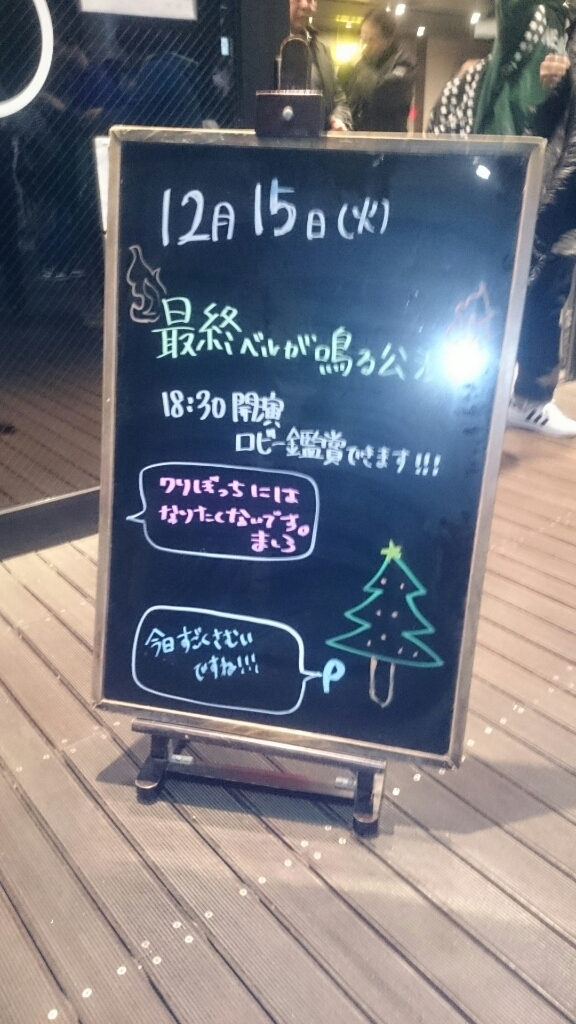 12月15日(火)
最終ベルが鳴る公
18:30 開演
ロビー鑑賞できます!!!
クリぼっちには
なりたくないです。
ましろ
今日すごくさむい
ですね!!!
P